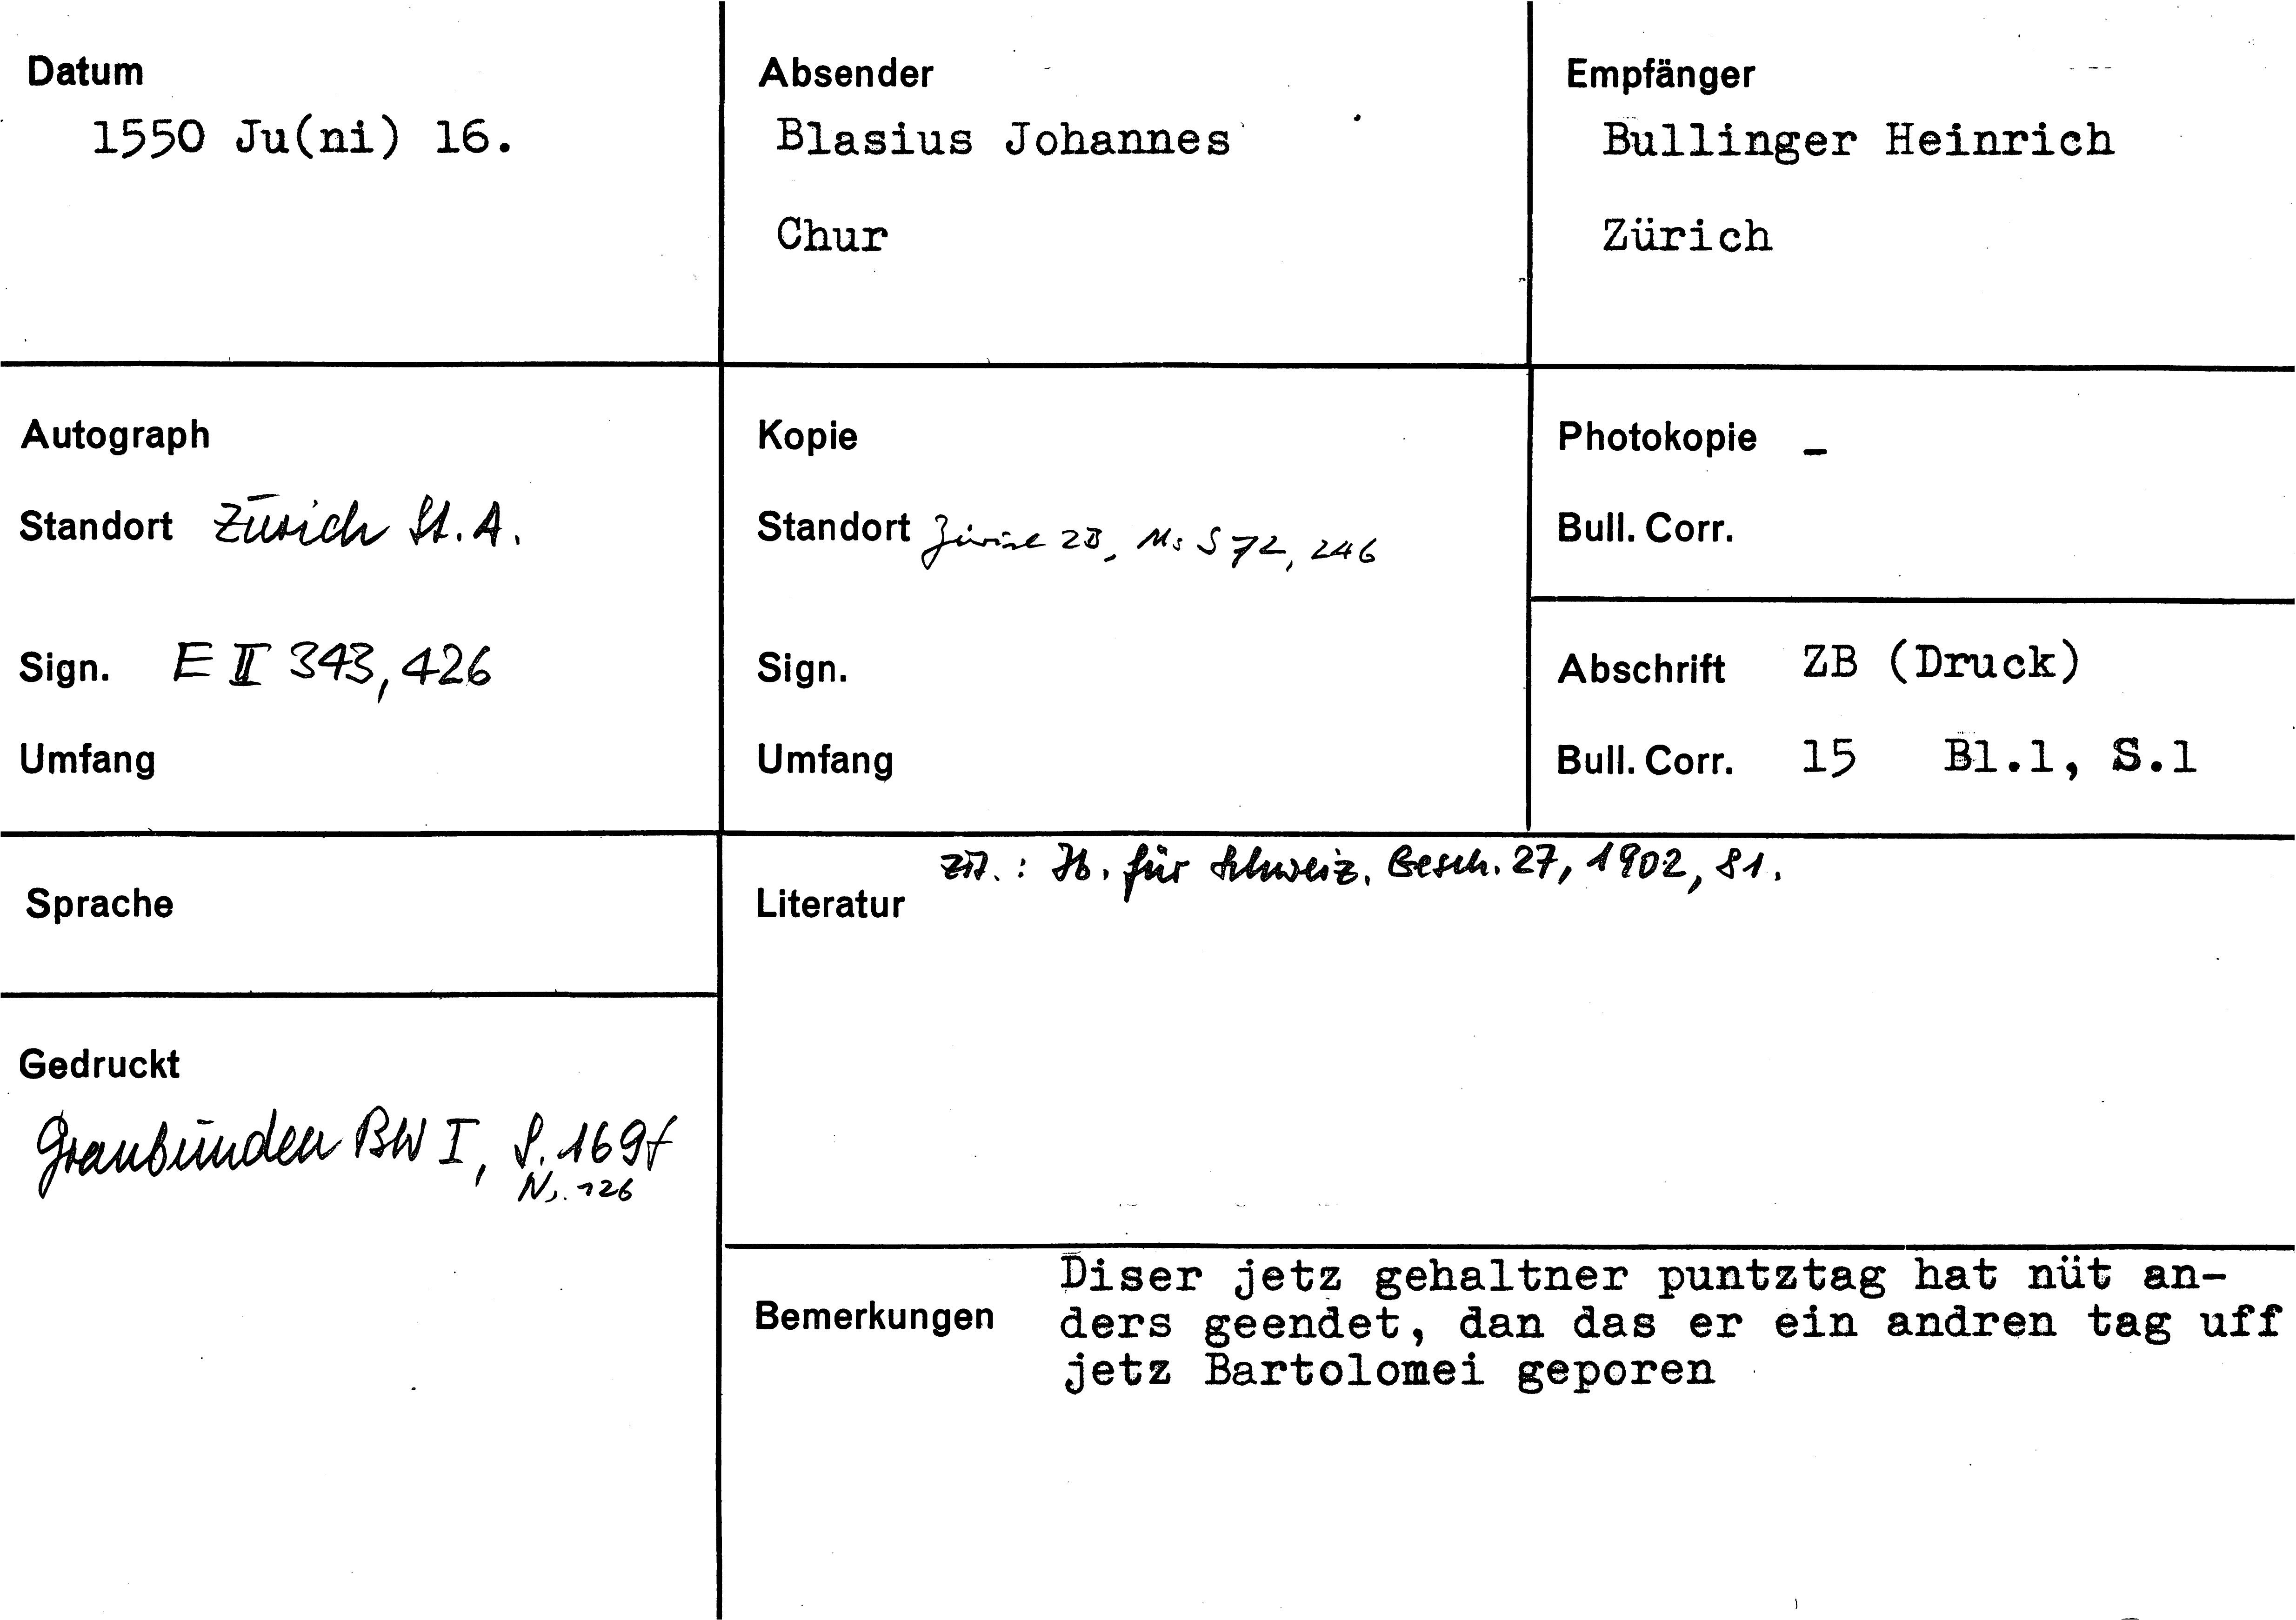 Datum
1550 Ju(ni) 16.
Absender
Blasius Johannes
Chur
Empfänger
Bullinger Heinrich
Zürich
Autograph
Standort Zürich St. A.
Sign. E II 343, 426
Umfang
Kopie
Standort Zürich ZB, Ms S 72, 246
Sign.
Umfang
Photokopie –
Bull. Corr.
Abschrift ZB (Druck)
Bull. Corr. 15 Bl.1, S.1
Sprache
Gedruckt
Graubünden BW I, S. 169f
Nr. 126
zit.: Jb. für Schweiz. Gesch. 27, 1902, 81.
Literatur
Bemerkungen
Diser jetz gehaltner puntztag hat nüt an-
ders geendet, dan das er ein andren tag uff
jetz Bartolomei geporen